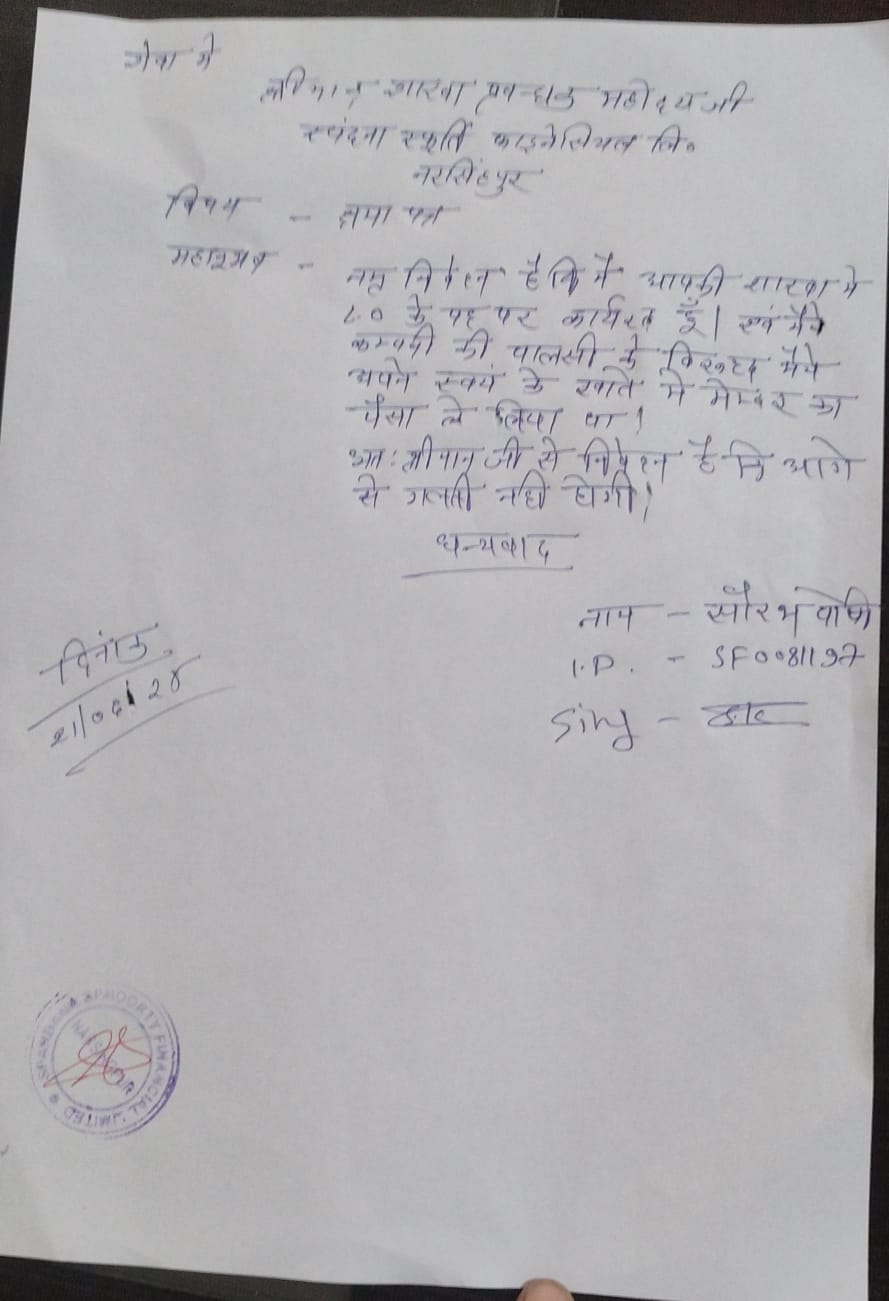 सेवा मे
श्रीमान् शाखा प्रबन्धक महोदय जी
स्पंदना स्फूर्ति फाइनेंसियल लि०
नरसिंहपुर
विषय - क्षमा पत्र
महाशय -
नम्र निवेदन है कि मै आपकी शाखा मे
L.O के पद पर कार्यरत हूँ। एवं मैने
कम्पनी की पालसी के विरुद्ध मैने
अपने स्वयं के खाते मे मेम्बर का
पैसा ले लिया था!
अत: श्रीमान जी से निवेदन है कि आगे
से गलती नही होगी!
धन्यवाद
नाम - सौरभ
I.D. - SF0081197
Sing -
दिनांक
21/06/24
SPANDANA SPHOORTY FINANCIAL LIMITED